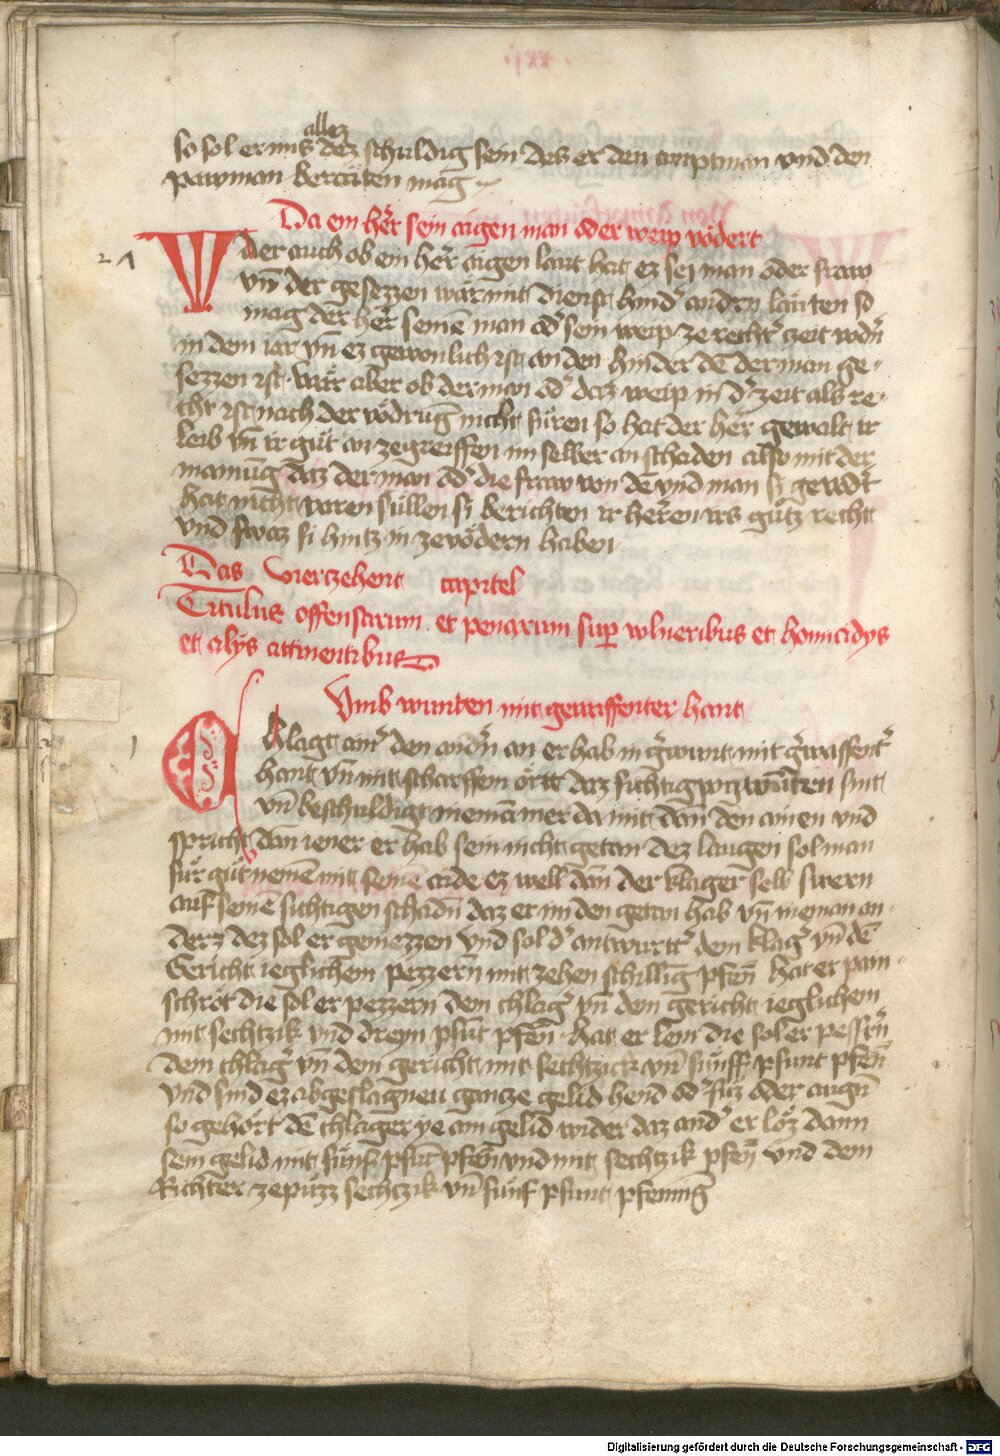 allez
so sol er uns dez schuldig sein des er den amptman vnd den
pawman berauten mag
Da ein her̄ sein aigen man oder weip vodert
21
Wder auch ob ein her̄ aigen laut hat ez sei man oder fraw
vn̄ der gesezzen wär mit dienst hind' andrn läuten so
mag der her̄ seinē man od' sein weip ze recht' zeit vodn̄
in dem iar vn̄ ez gewonlich ist an den hinder dē der man ge-
sezzen ist. Wär aber ob der man od' daz weip in d' zeit als re-
cht ist nach der vödrūg nicht füren so hat der her̄ gewalt ir
leib vn̄ ir gūt an ze greiffen im selber an schaden also mit der
manūg daz der man od' die fraw von dē vnd man si gevodt
hat nicht varen süllen si berichten ir heren irs gūtz recht
vnd swaz si hintz in ze vödern haben
Das vierzehent capitel
Titulus offensarum et penarum sup vulneribus et homicidijs
et alijs attinentibus
Vmb wunten mit gewaffenter hant
1
Klagt ain' den andn̄ an er hab in g'wunt mit g'waffent'
hant vn̄ mit scharffem ortt daz sichtig wūten sint
vn̄ beschuldigt niemā mer da mit dan den ainen vnd
spricht dan iener er hab sein nicht getan dez laugen sol man
für gūt nemē mit seinē aide ez well dan der klager selb swern
auf seinē sichtigen schadn̄ daz er im den getan hab vn̄ nieman an-
derz dez sol er geniezzen vnd sol d' antwurtt' dem klag' vn̄ dē
Gericht ieglichem pezzern̄ mit zehen schilling pfen̄ hat er pain-
schrot die sol er pezzern dem chlag' vn̄ dem gericht ieglichem
mit sechtzik vnd dreyn pfūt pfen̄. hat er lem die sol er pessrn̄
dem chlag' vn̄ dem gericht mit sechtzick vn̄ fünff pfunt pfen̄
vnd sind ez abgeslagneu gancze gelid hend od' füz oder augn̄
so gehört dē chlager ye ain gelid wider daz and' er löz dann
sein gelid mit fünf pfūt pfen̄ vnd mit sechtzik pfen̄ vnd dem
Richter ze puzz sechczik vn̄ fünf pfunt pfening
Digitalisierung gefördert durch die Deutsche Forschungsgemeinschaft - DFG